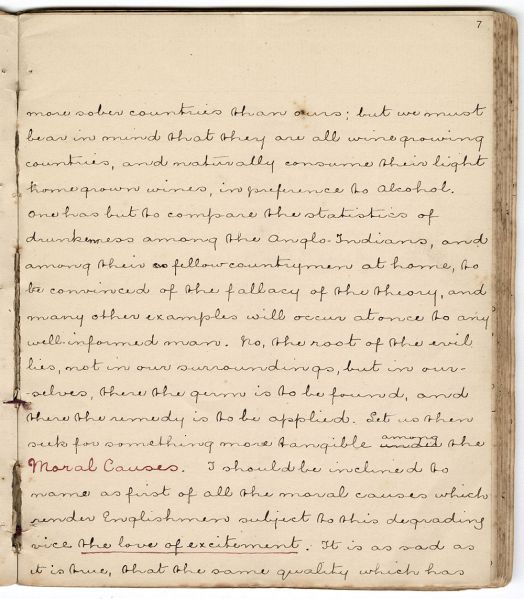 7
more sober countries than ours; but we must
bear in mind that they are all wine growing
countries, and naturally consume their light
homegrown wines, in preference to Alcohol.
One has but to compare the statistics of
drunkenness among the Anglo-Indians, and
among their fellow countrymen at home, to
be convinced of the fallacy of the theory, and
many other examples will occur at once to any
well-informed man. No, the root of the evil
lies, not in our surroundings, but in our-
-selves, there the germ is to be found, and
there the remedy is to be applied. Let us then
seek for something more tangible among under the
Moral Causes. I should be inclined to
name as first of all the moral causes which
render Englishmen subject to this degrading
vice the love of excitement. It is as sad as
it is true, that the same quality which has